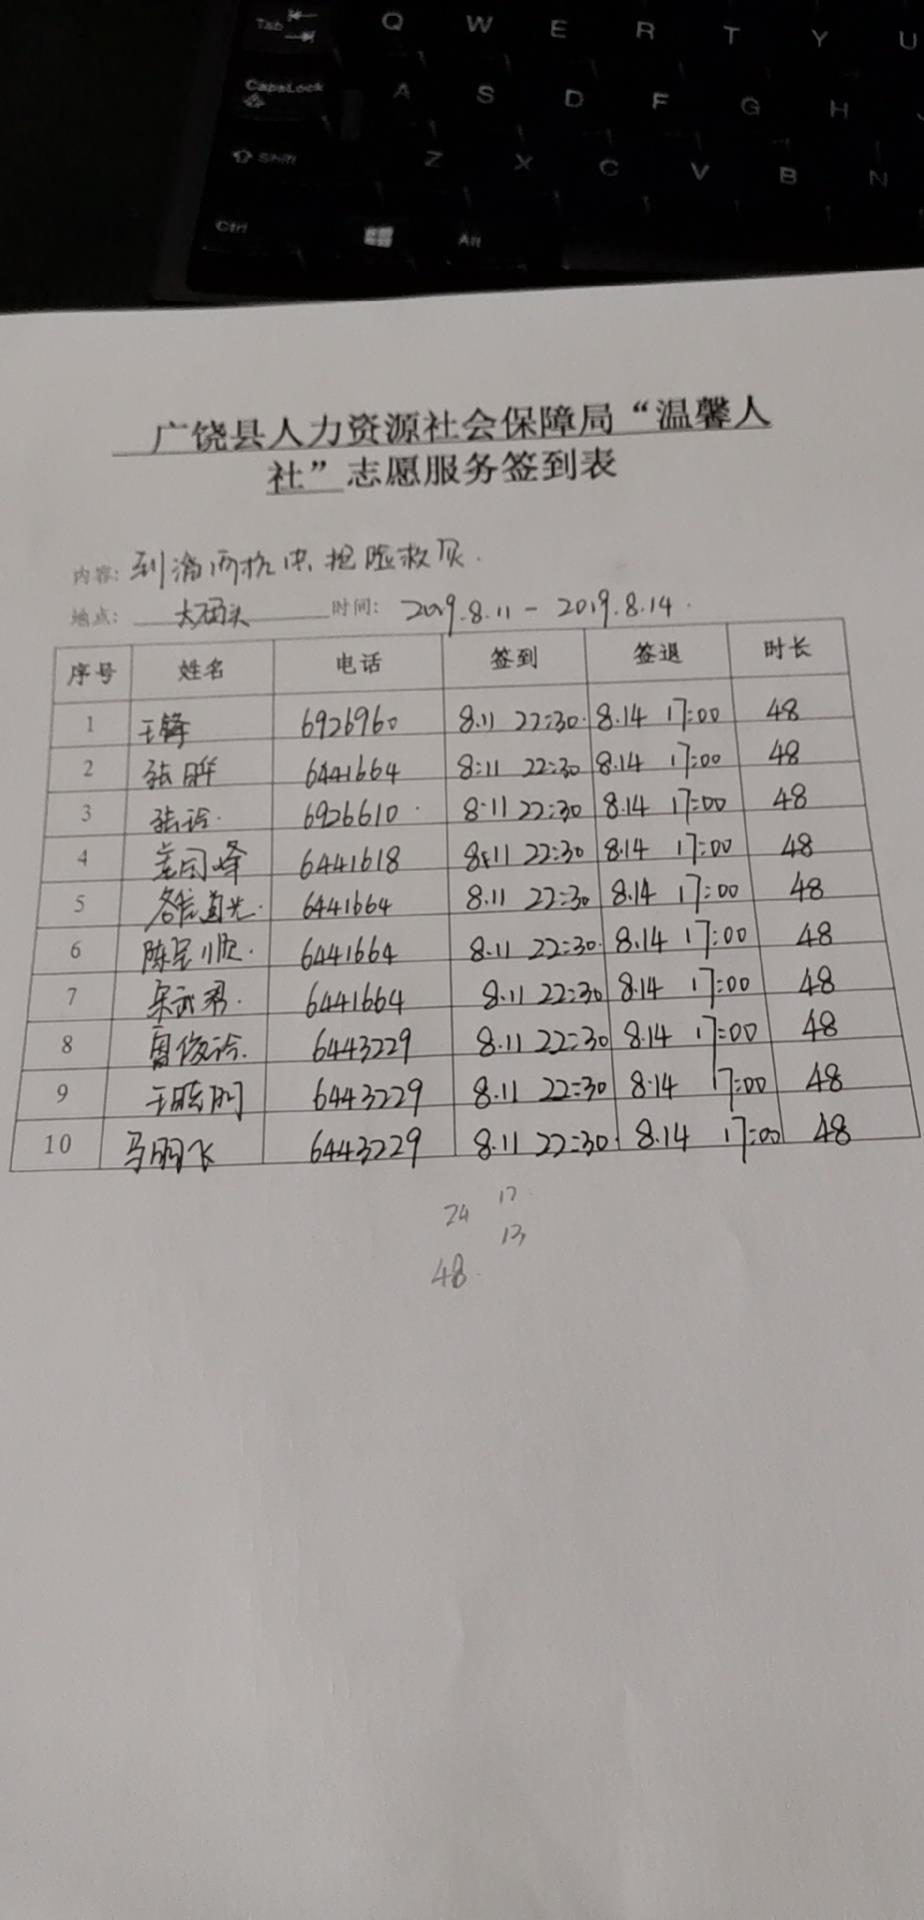 Tab Q W E R T Y U
CapsLock A S D F G H J
Shift Z X C V B N
Ctrl Alt
广饶县人力资源社会保障局“温馨人
社”志愿服务签到表
内容: 到 抢险救灾.
地点: 大码头 时间: 2019.8.11-2019.8.14.
序号 姓名 电话 签到 签退 时长
1 王锋 6926960 8.11 22:30 8.14 17:00 48
2 张胜 6441664 8:11 22:30 8.14 17:00 48
3 6926610 8.11 22:30 8.14 17:00 48
4 6441618 8.11 22:30 8.14 17:00 48
5 6441664 8.11 22:30 8.14 17:00 48
6 6441664 8.11 22:30 8.14 17:00 48
7 宋武君 6441664 8.11 22:30 8.14 17:00 48
8 6443229 8.11 22:30 8.14 17:00 48
9 6443229 8.11 22:30 8.14 17:00 48
10 6443229 8.11 22:30 8.14 17:00 48
24 17
13
48